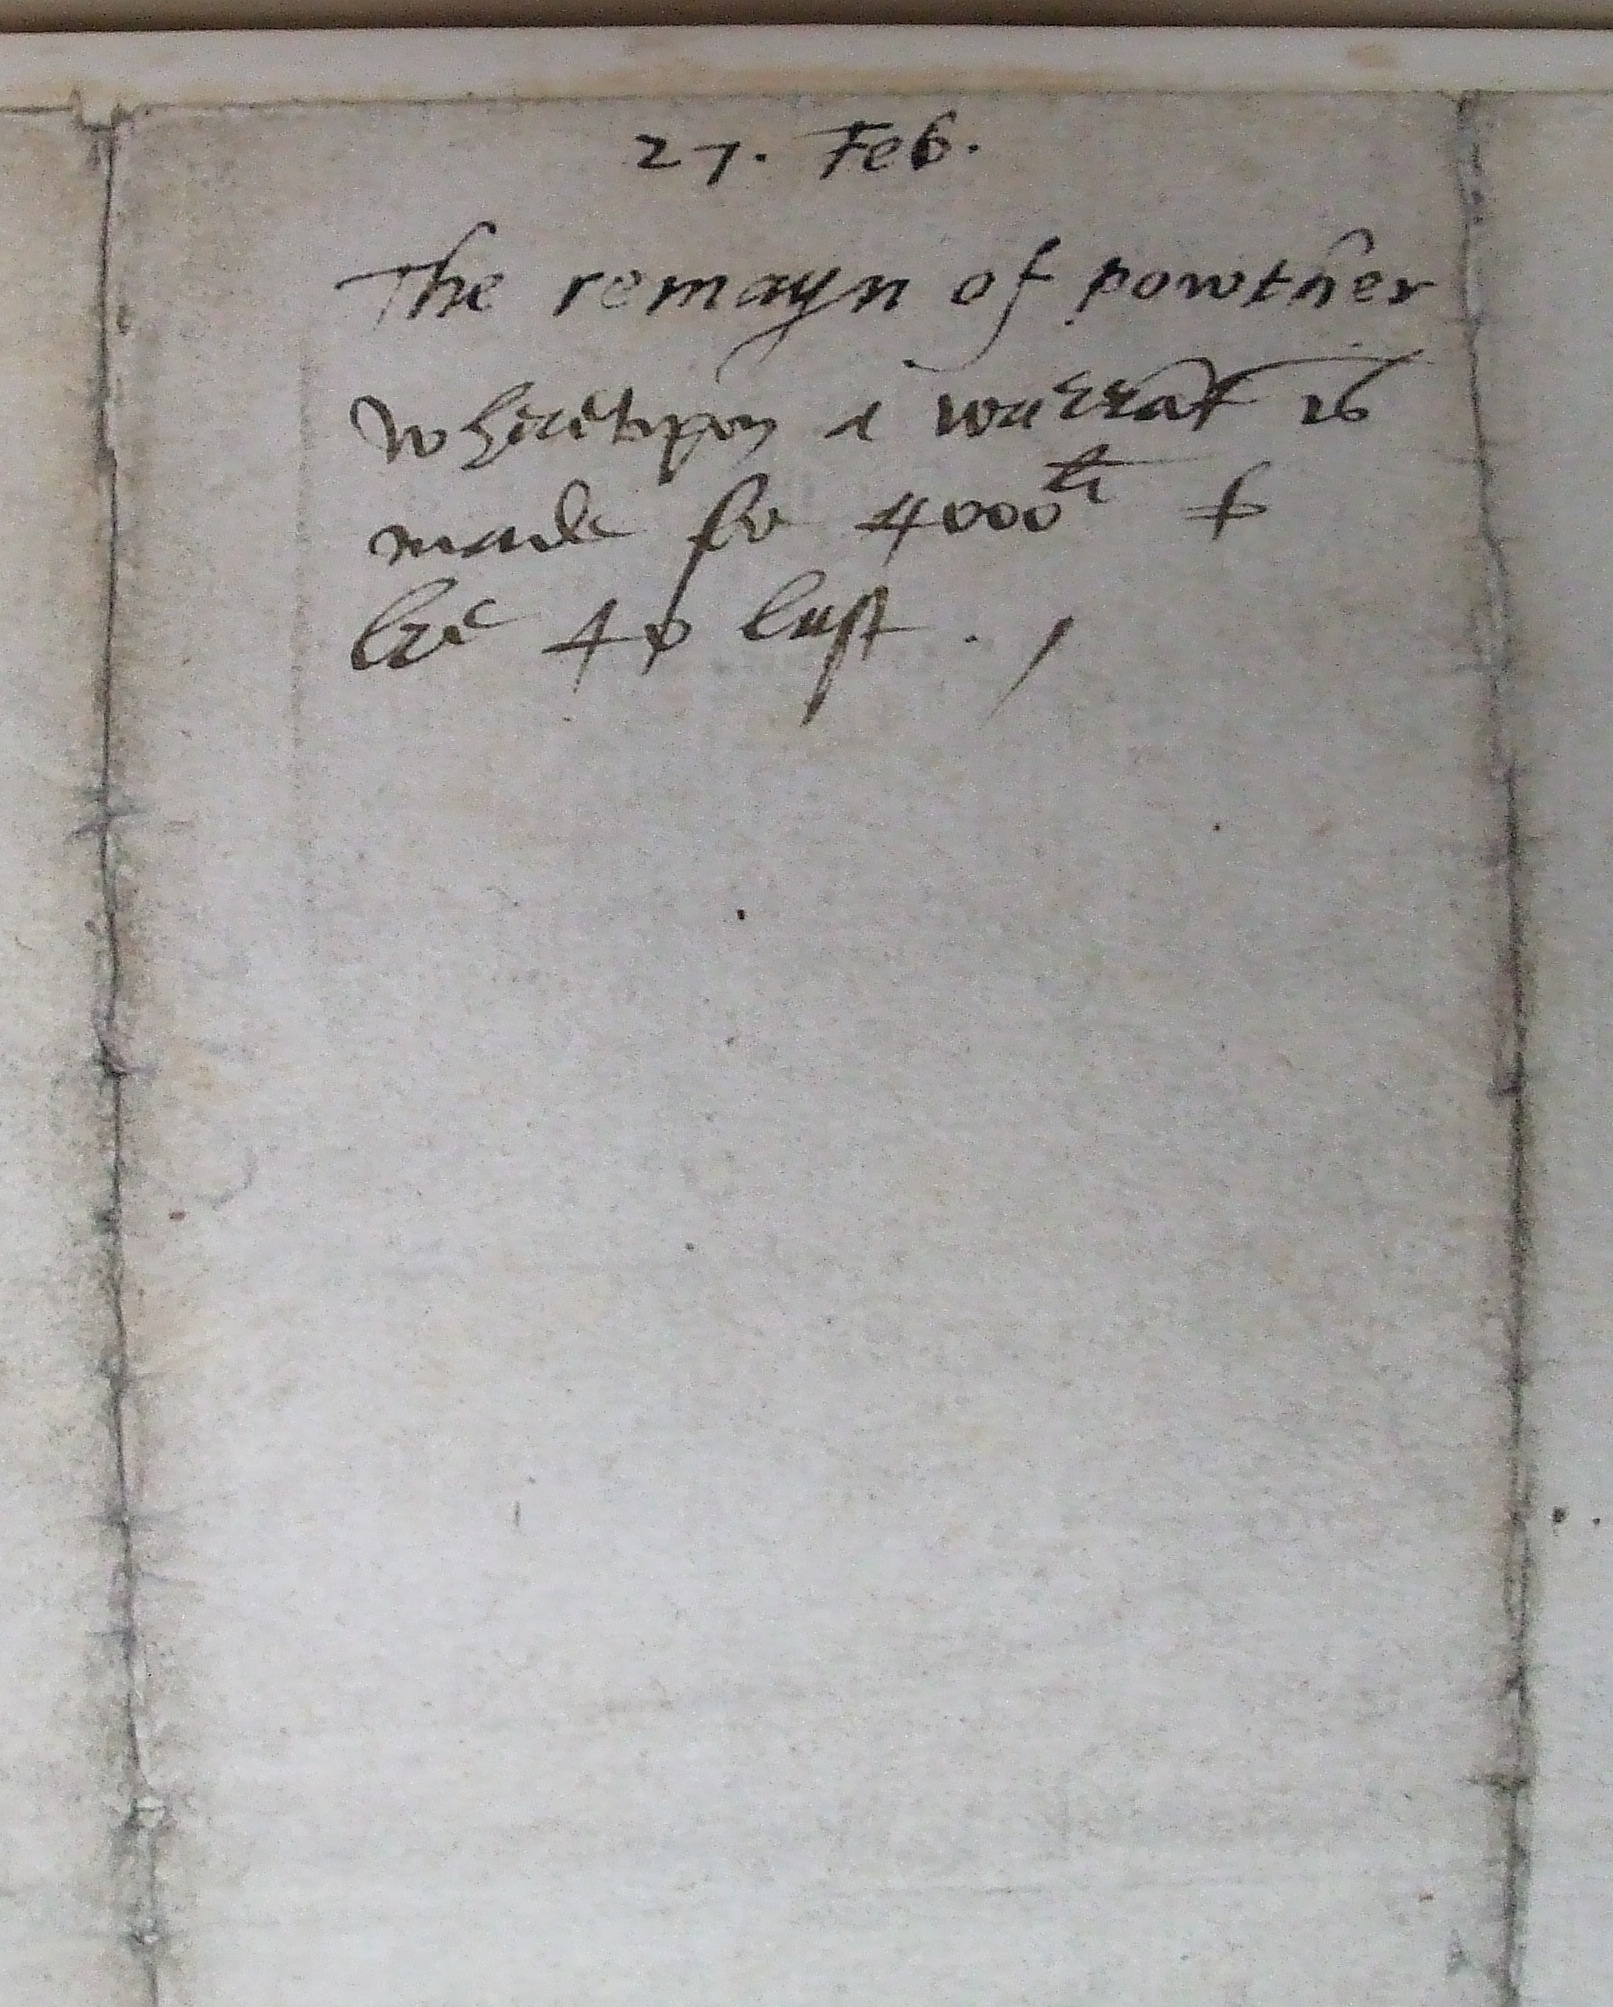 27. Feb.
The remayn of powther
Wheruppon a warrat is
made for 4000li
40 last . /